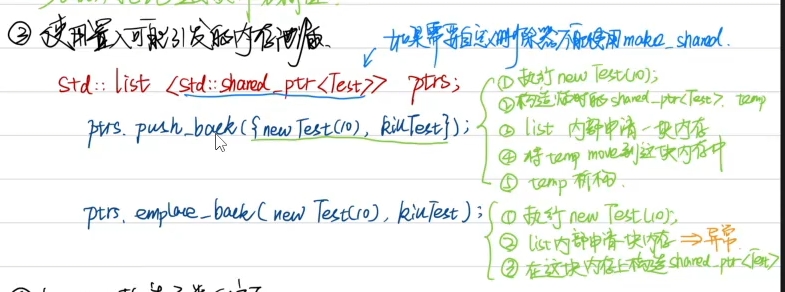 ③ 使用置入可能引发的内存泄漏.
如果需要自定义删除器不能使用make_shared.
std::list <std::shared_ptr<Test>> ptrs;
ptrs.push_back({new Test(10), killTest});
① 执行 new Test(10);
② 构造临时的 shared_ptr<Test> temp
③ list 内部申请一块内存
④ 将 temp move到这块内存中
⑤ temp 析构.
ptrs.emplace_back(new Test(10), killTest);
① 执行 new Test(10);
② list内部申请一块内存 ⇒ 异常
③ 在这块内存上构造 shared_ptr<Test>